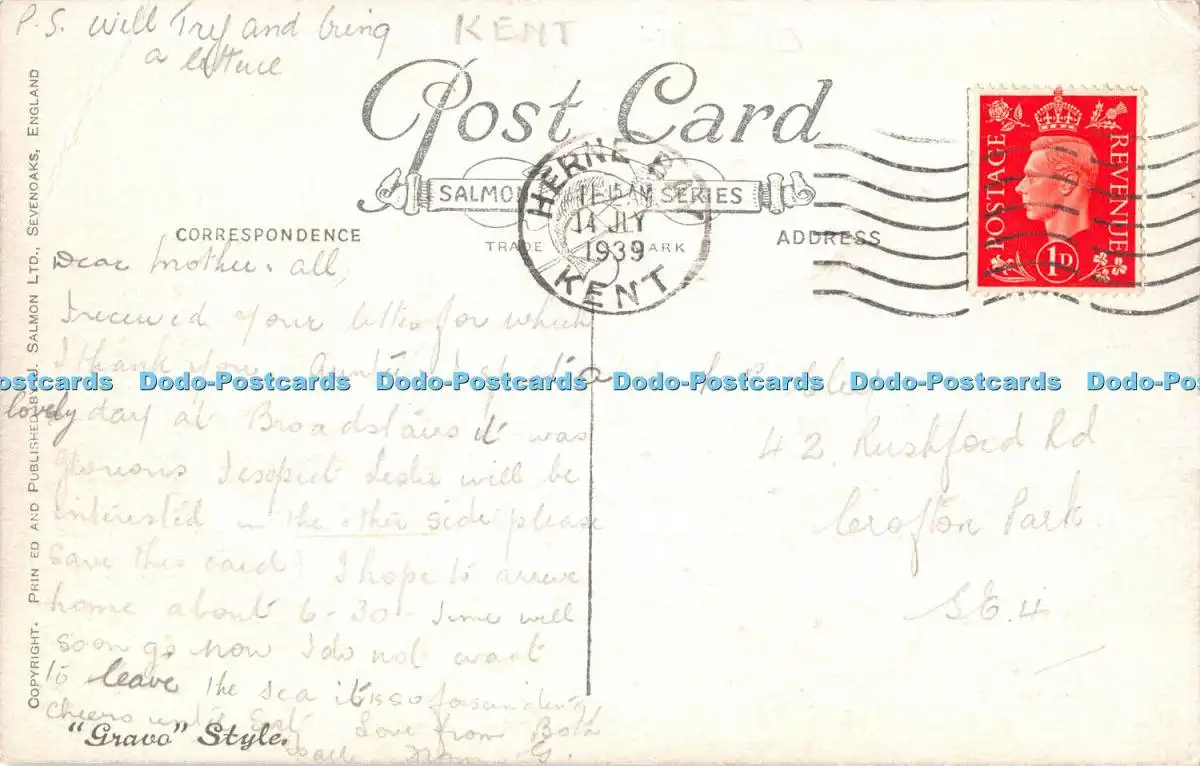 P.S. will Try and bring
a lettuce
KENT
Post Card
SALMON SERIES
TRADE MARK
HERNE BAY
11.15 AM
14 JLY
1939
KENT
POSTAGE REVENUE
1D
CORRESPONDENCE
ADDRESS
COPYRIGHT. PRINTED AND PUBLISHED BY J. SALMON LTD., SEVENOAKS, ENGLAND
Dear Mother. all,
I received your letter for which
I thank you Auntie I spent a
lovely day at Broadstairs it was
glorious I expect Leslie will be
interested in the other side please
save this card! I hope to arrive
home about 6-30 Time will
soon go now I do not want
to leave the sea it is so fascinating
cheers until Love from Both
"Gravo" Style.
42 Rushford Rd
Crofton Park.
S.E.4
Dodo-Postcards Dodo-Postcards Dodo-Postcards Dodo-Postcards Dodo-Postcards